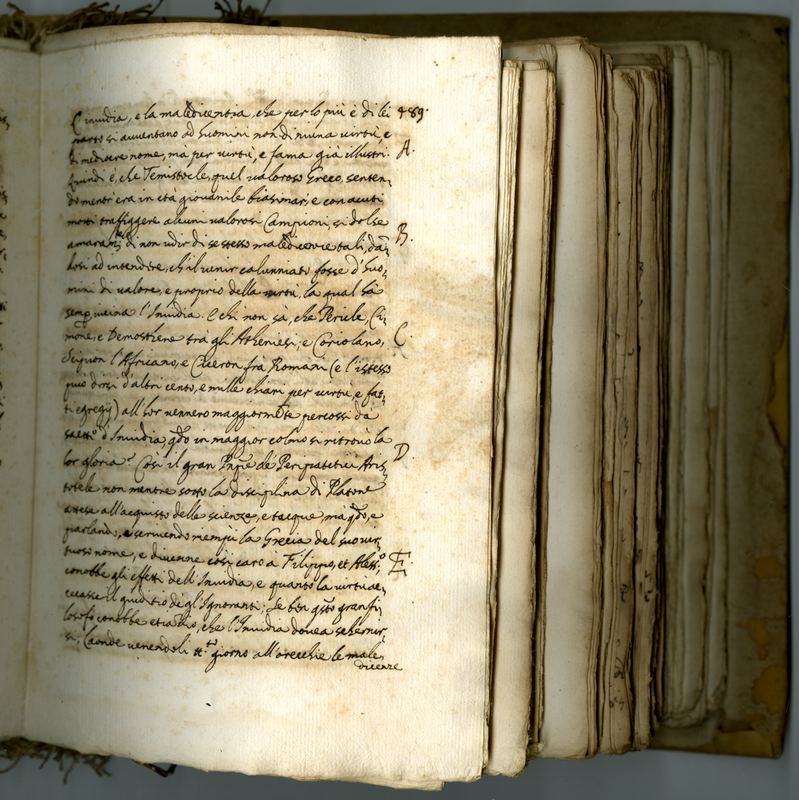 L'invidia, e la maledicentia, che per lo più è di lei 489.
parto si avventano ad huomini non di niuna virtù, e
di mediocre nome, mà per virtù, e fama già illustri. A.
Quindi è, che Temistocle, quel valoroso Greco, senten,
do mentr'era in età giovanile biasmar, e con acuti
motti trafiggere alcuni valorosi Campioni, si dolse
amaram.te di non udir di se stesso maledicenze tali, dā, B.
dosi ad intendere, ch'il venir calunniato fosse d'huo,
mini di valore, e proprio della virtù, la qual hà
semp vicina l'Invidia. E chi non sà, che Pericle, Ci,
mone, e Demosthene trà gli Atheniesi; e Coriolano, C.
Scipion l'Africano, e Ciceron frà Romani (e l'istesso
può dirsi d'altri cento, e mille chiari per virtù, e fat,
ti egregij) all'hor vennero maggiormēte percossi dà
saette d'Invidia, qdo in maggior colmo si ritrovò la
lor gloria? Così il gran Pnpe de Peripatetici Aris, D.
totele non mentre sotto la disciplina di Platone
attese all'acquisto delle scienze, e tacque, ma qdo, e
parlando, e scrivendo rempì la Grecia del suo vir,
tuoso nome, e divenne così caro à Filippo, et Aless.o
conobbe gli effetti dell'Invidia, e quanto la virtù ac, E.
cecasse il giuditio degl'Ignoranti; Se ben qsto gran fi,
losofo conobbe etiandio, che l'Invidia dovea schernir,
si; Laonde venendoli giorno all'orecchie le male,
dicenze